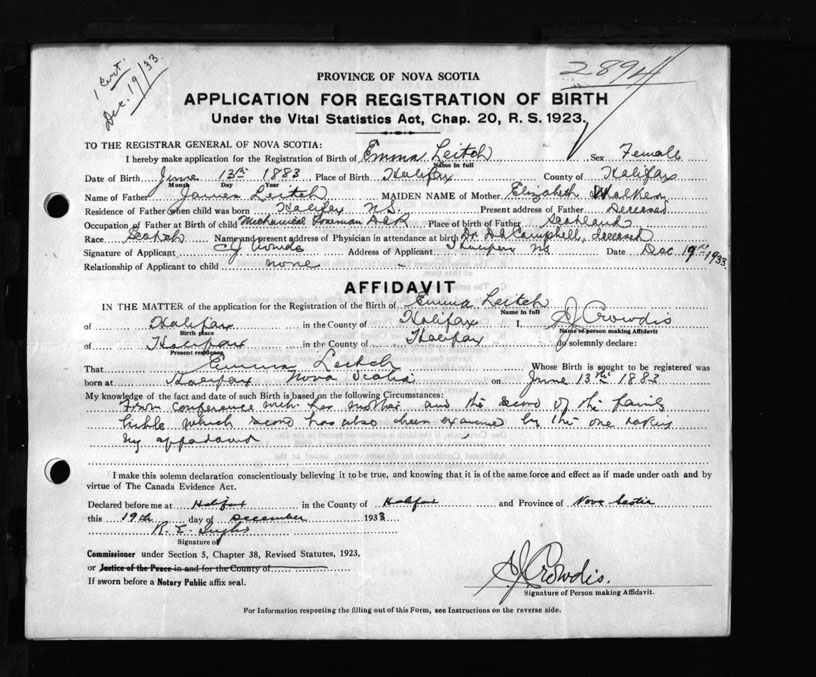 1 Cert.
Dec. 19/33.
2894
PROVINCE OF NOVA SCOTIA
APPLICATION FOR REGISTRATION OF BIRTH
Under the Vital Statistics Act, Chap. 20, R. S. 1923.
TO THE REGISTRAR GENERAL OF NOVA SCOTIA:
I hereby make application for the Registration of Birth of Emma Leitch Sex Female
Name in full
Date of Birth June 13th 1883 Place of Birth Halifax County of Halifax
Month Day Year
Name of Father James Leitch MAIDEN NAME of Mother Elizabeth Walker
Residence of Father when child was born Halifax N.S. Present address of Father Deceased
Occupation of Father at Birth of child Mechanical Foreman Place of birth of Father Scotland
Race Scotch Name and present address of Physician in attendance at birth Dr. Campbell, deceased
Signature of Applicant Crowdis Address of Applicant NS Date Dec. 19th 1933
Relationship of Applicant to child none
AFFIDAVIT
IN THE MATTER of the application for the Registration of the Birth of Emma Leitch
Name in full
of Halifax in the County of Halifax I, AJ Crowdis
Birth place Name of Person making Affidavit
of Halifax in the County of Halifax do solemnly declare:
Present residence
That Emma Leitch Whose Birth is sought to be registered was
born at Halifax Nova Scotia on June 13th 1883
My knowledge of the fact and date of such Birth is based on the following Circumstances:
From conference with her mother and the record of the family
bible which record has also been examined by the one taking
my
I make this solemn declaration conscientiously believing it to be true, and knowing that it is of the same force and effect as if made under oath and by
virtue of The Canada Evidence Act.
Declared before me at Halifax in the County of Halifax and Province of Nova Scotia
this 19th day of December 1933
R. E.
Signature of
Commissioner under Section 5, Chapter 38, Revised Statutes, 1923,
or Justice of the Peace in and for the County of
If sworn before a Notary Public affix seal.
AJ Crowdis.
Signature of Person making Affidavit.
For Information respecting the filling out of this Form, see Instructions on the reverse side.